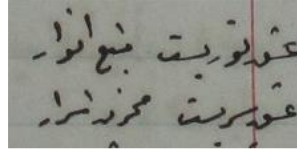 عشق نوریست منبع انوار
عشق سریست مخزن اسرار